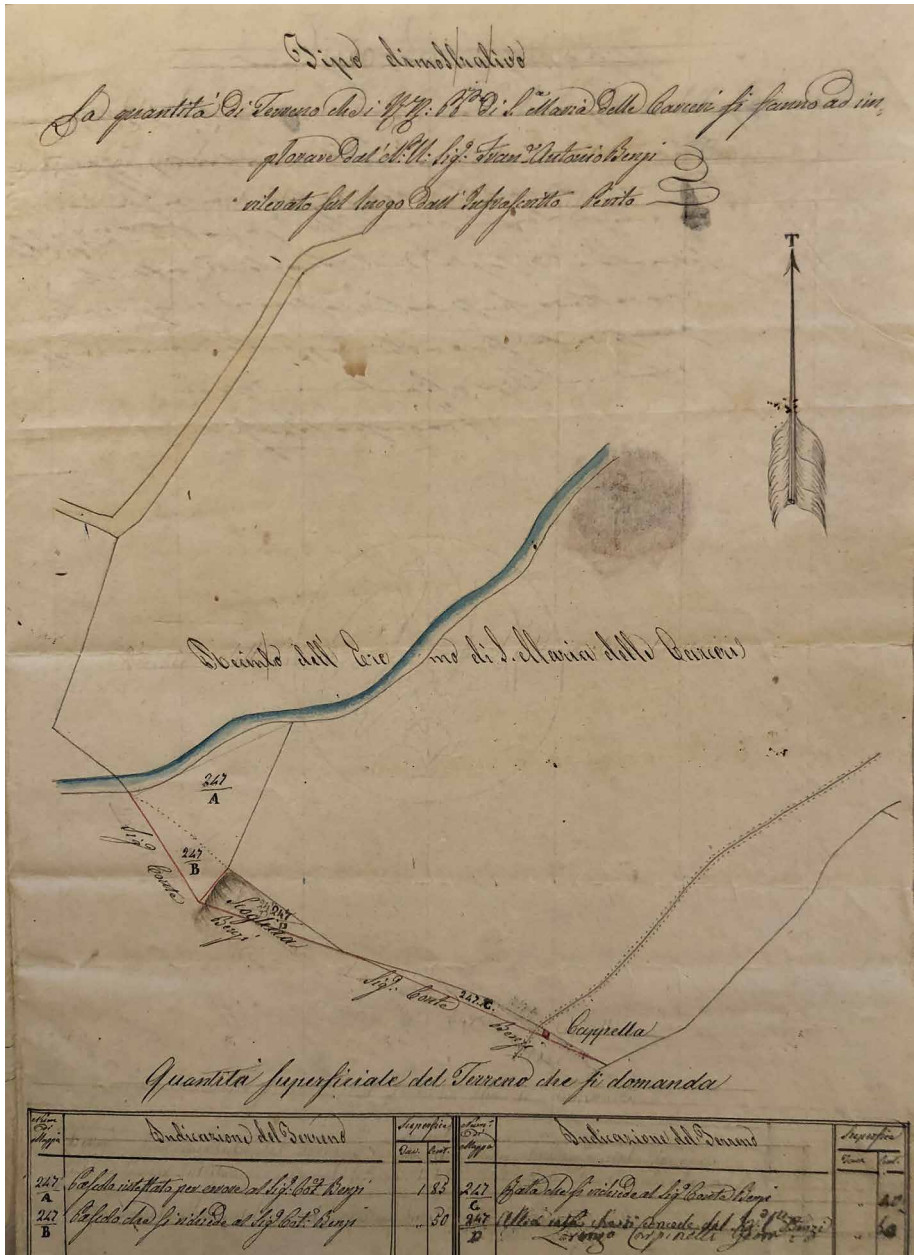 Tipo dimostrativo
La quantità di Terreno che i di S. Maria delle Carceri si fanno ad im,
plorare dal N. U. Sigr. Antonio Benzi
rilevato sul luogo dall' Infrascritto Perito
T
Recinto dell' Eremo di S. Maria delle Carceri
247
A
247
B
Sigr. Conte
Benzi
Scogliera
247
Sigr. Conte
Benzi
247. C.
Cappella
Quantità superficiale del Terreno che si domanda
Num. di Mappa
Indicazione del Terreno
Superficie
Tav. Cent.
Num. di Mappa
Indicazione del Terreno
Superficie
Tav. Cent.
247 A Particola intestata per errore al Sigr. Benzi 1 83
247 C che si richiede al Sigr. Conte Benzi
247 B Particola che si richiede al Sigr. Benzi " 50
247 D
Lorenzo Carpinelli